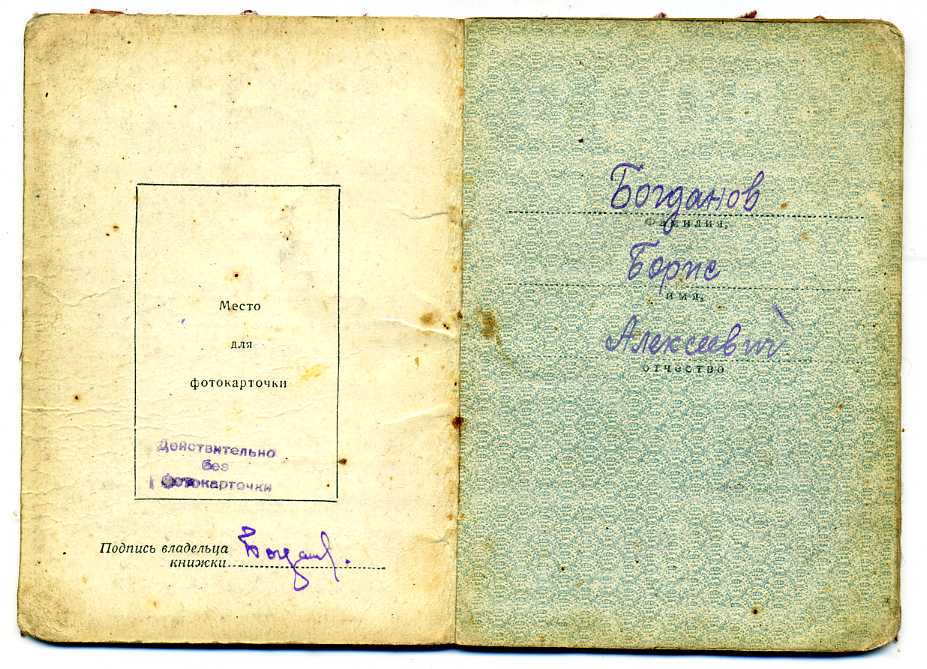 Место
для
фотокарточки
Действительно
без
фотокарточки
Подпись владельца
книжки
Богданов
фамилия,
Борис
имя,
Алексеевич
отчество